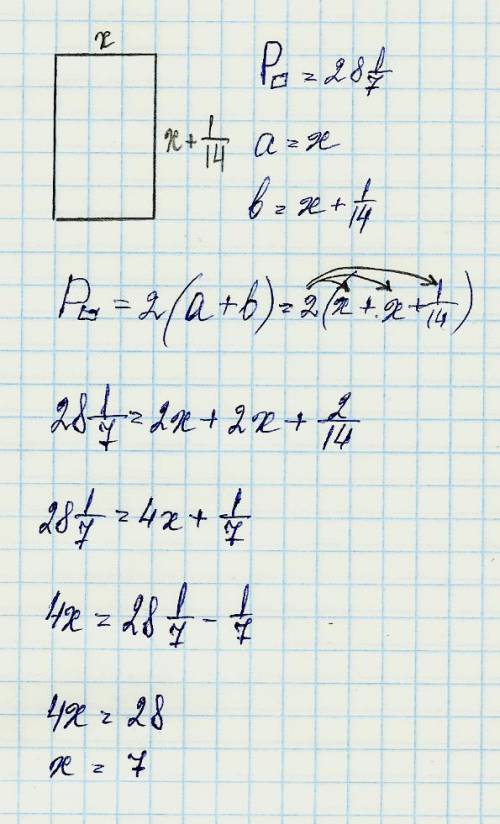 x
x + 1/14
P□ = 28 1/7
a = x
b = x + 1/14
P□ = 2(a + b) = 2(x + x + 1/14)
28 1/7 = 2x + 2x + 2/14
28 1/7 = 4x + 1/7
4x = 28 1/7 - 1/7
4x = 28
x = 7